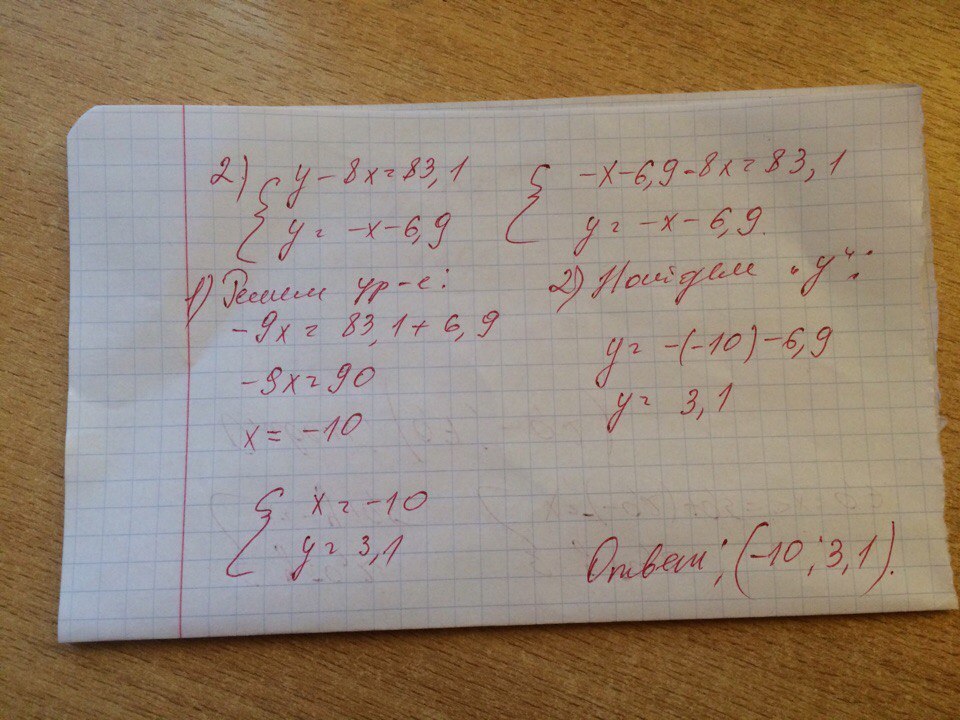 2) { y - 8x = 83,1 { -x-6,9-8x = 83,1
y = -x-6,9 y = -x-6,9.
1) Решим ур-е:
-9x = 83,1 + 6,9
-9x = 90
x = -10
2) Найдем „y“:
y = -(-10)-6,9
y = 3,1
{ x = -10
y = 3,1
Ответ: (-10; 3,1).